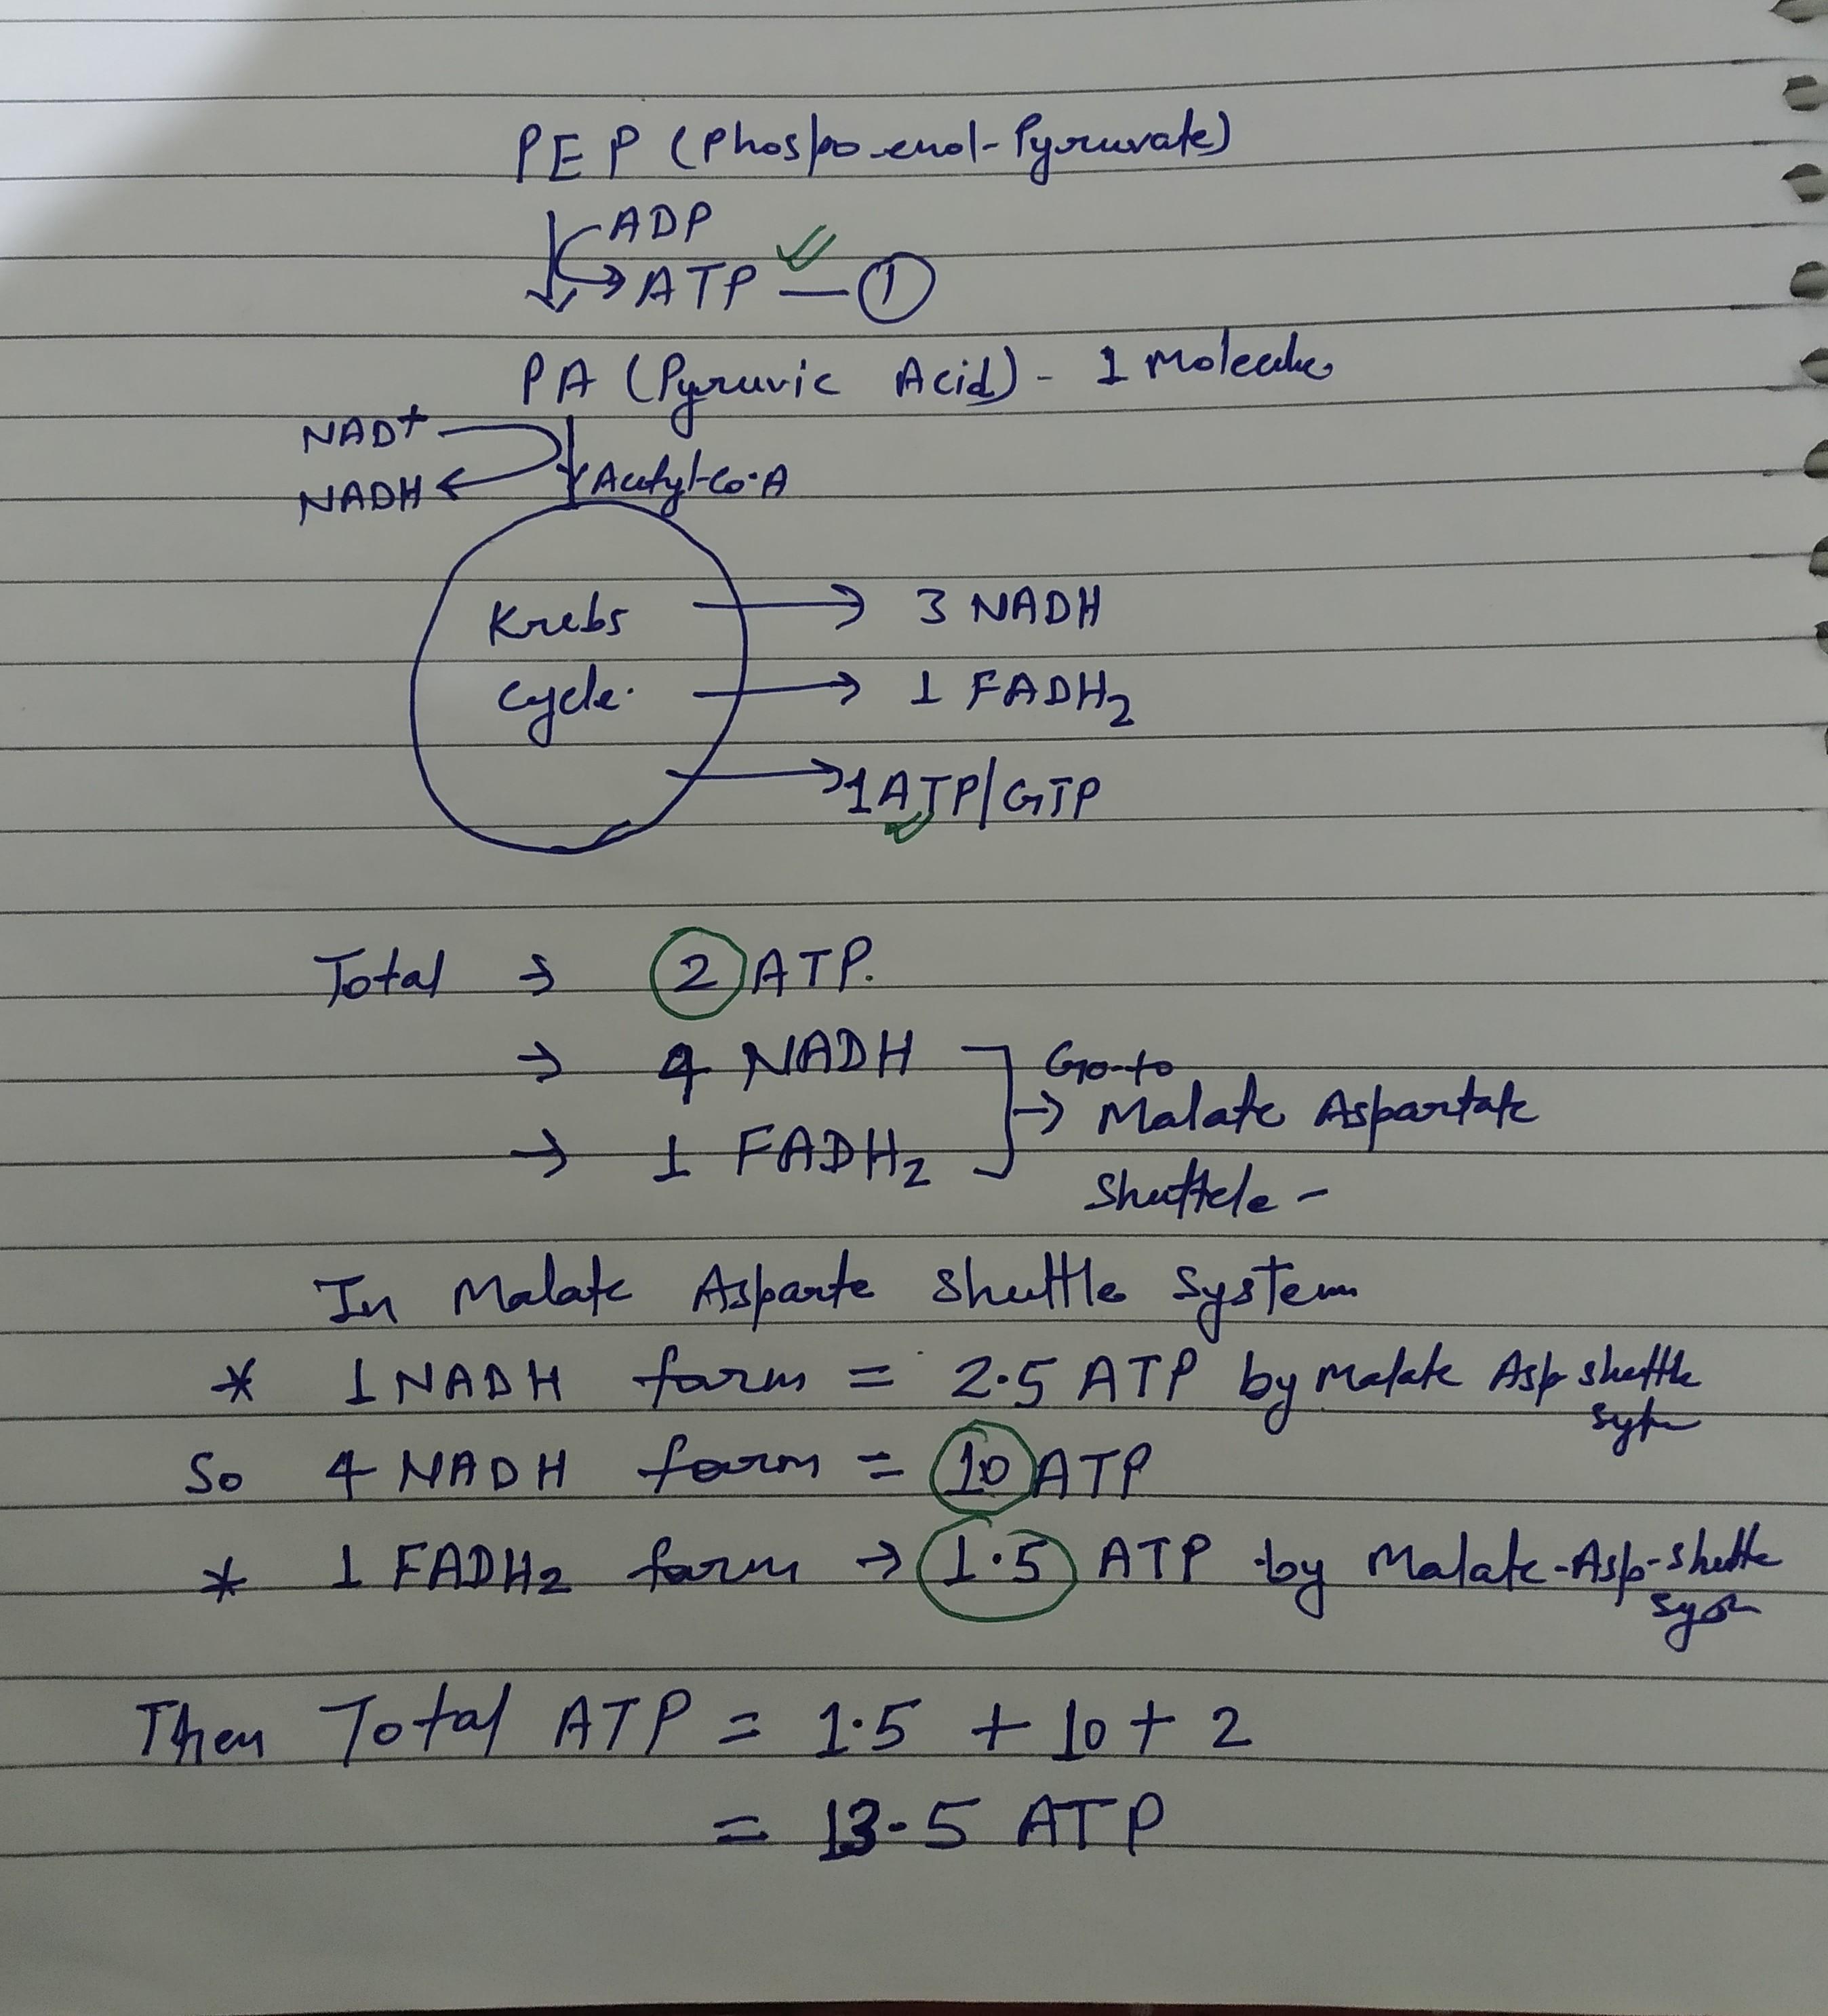 PEP (Phospo-enol-Pyruvate)
ADP
ATP — 1
PA (Pyruvic Acid) - 1 Molecule
NAD+
NADH
Acetyl-Co-A
Krebs
Cycle.
3 NADH
1 FADH2
1 ATP/GTP
Total → 2 ATP.
→ 4 NADH
→ 1 FADH2
Go-to
→ Malate Aspartate
Shuttele -
In Malate Asparte Shuttle System
* 1 NADH form = 2.5 ATP by Malate Asp Shuttle
So 4 NADH form = 10 ATP
* 1 FADH2 form → 1.5 ATP by Malate-Asp-Shuttle
Then Total ATP = 1.5 + 10 + 2
= 13.5 ATP